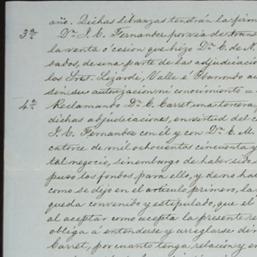 año. Dichas libranzas tendrán la firm
3ro Dn. J. C. Fernandez por via de tran
la venta ó cesion que hizo Dn. C. de N.
sados, de una parte de las adjudicacion
los Sres. Lizardi, Valle é Iturrondo au
sin su autorizacion ni conocimiento =
4to Reclamando Dn. C. Carret
dichas adjudicaciones, en virtud del c
J. C. Fernandez con él y con Dn. E. M.
catorce de mil ochocientos cincuenta y
tal negocio, sin embargo de haber sido
puso los fondos para ello, y de no hab
como se dijo en el articulo primero, la
queda convenido y estipulado, que él
al aceptar como acepta la presente re
obliga á entenderse y arreglarse dir
Carret, por cuanto tenga relacion y en